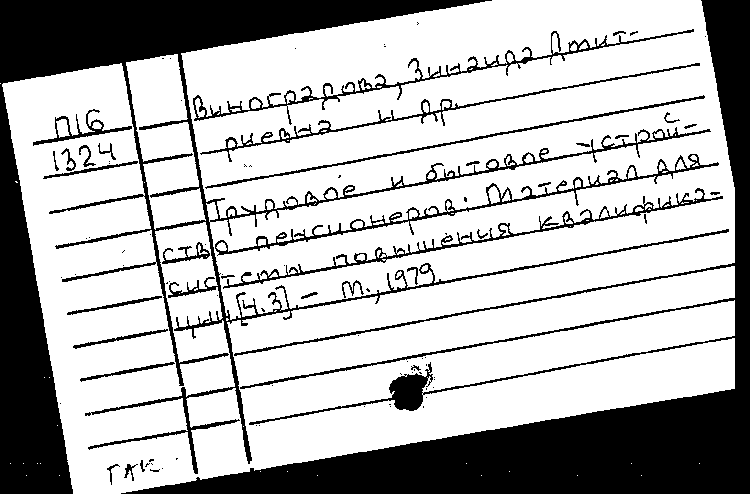 П16
1324
Виноградова, Зинаида Дмит-
риевна и др.
Трудовое и бытовое устрой-
ство пенсионеров: Материал для
системы повышения квалифика-
ции [Ч.3]. - М., 1979.
ГАК